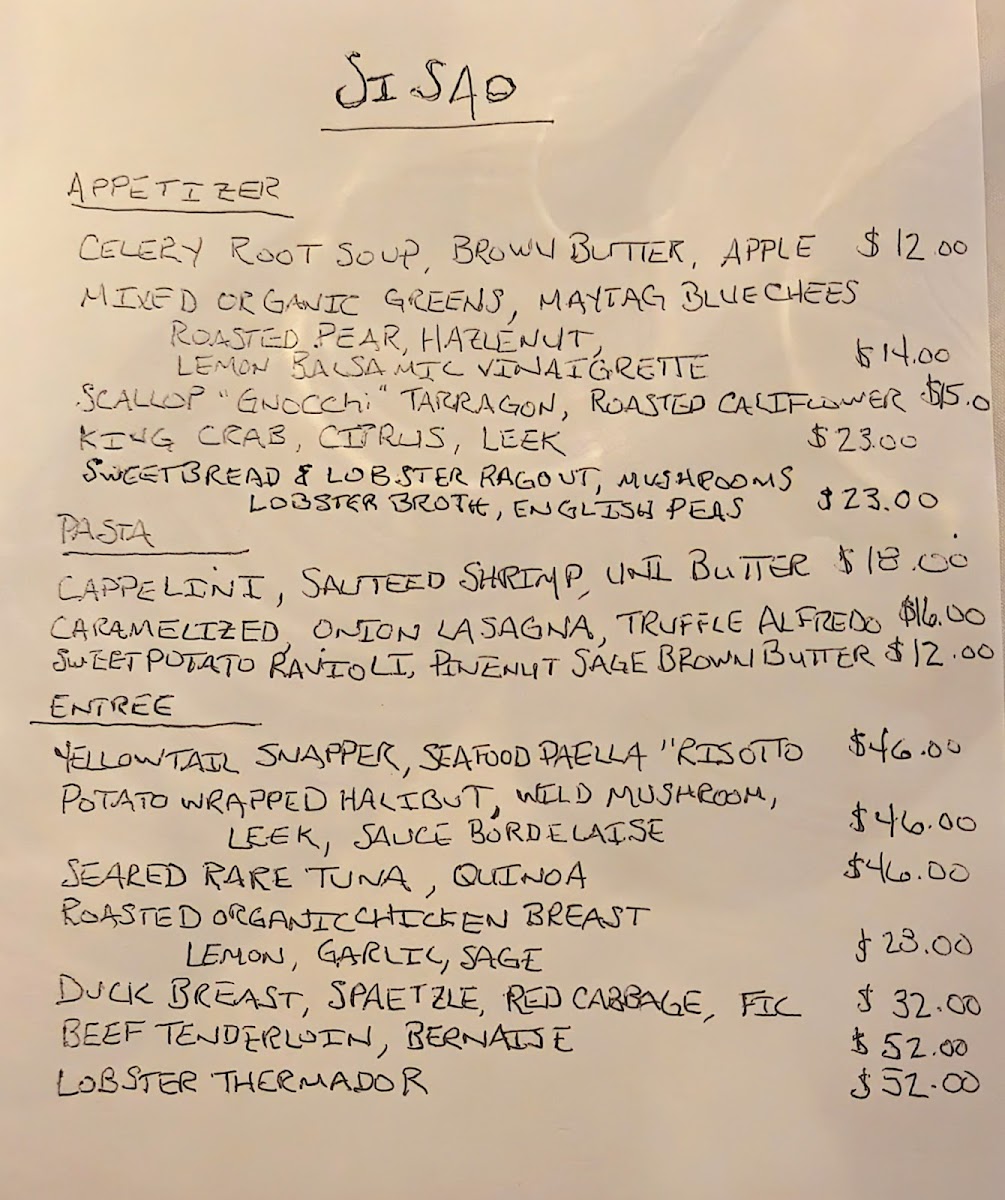 SI SAO
APPETIZER
CELERY ROOT SOUP, BROWN BUTTER, APPLE $12.00
MIXED ORGANIC GREENS, MAYTAG BLUE CHEES
ROASTED PEAR, HAZLENUT,
LEMON BALSAMIC VINAIGRETTE $14.00
SCALLOP "GNOCCHi" TARRAGON, ROASTED CALIFLOWER $15.0
KING CRAB, CITRUS, LEEK $23.00
SWEETBREAD & LOBSTER RAGOUT, MUSHROOMS
LOBSTER BROTH, ENGLISH PEAS $23.00
PASTA
CAPPELINI, SAUTEED SHRIMP, UNI BUTTER $18.00
CARAMELIZED, ONION LASAGNA, TRUFFLE ALFREDO $16.00
SWEET POTATO RAVIOLI, PINENUT SAGE BROWN BUTTER $12.00
ENTREE
YELLOWTAIL SNAPPER, SEAFOOD PAELLA "RISOTTO $46.00
POTATO WRAPPED HALIBUT, WILD MUSHROOM,
LEEK, SAUCE BORDELAISE $46.00
SEARED RARE TUNA, QUINOA $46.00
ROASTED ORGANIC CHICKEN BREAST
LEMON, GARLIC, SAGE $28.00
DUCK BREAST, SPAETZLE, RED CABBAGE, FIG $32.00
BEEF TENDERLOIN, BERNAISE $52.00
LOBSTER THERMADOR $52.00